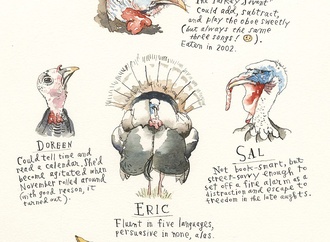 The Turkey Savant
Could add, subtract,
and play the oboe sweetly
(but always the same
three songs! ☹).
Eaten in 2002.
DOREEN
Could tell time and
read a calendar. She'd
become agitated when
November rolled around
(with good reason, it
turned out).
ERIC
Fluent in five languages,
persuasive in none, alas.
SAL
Not book-smart, but
street-savvy enough to
set off a fire alarm as a
distraction and escape to
freedom in the late aughts.